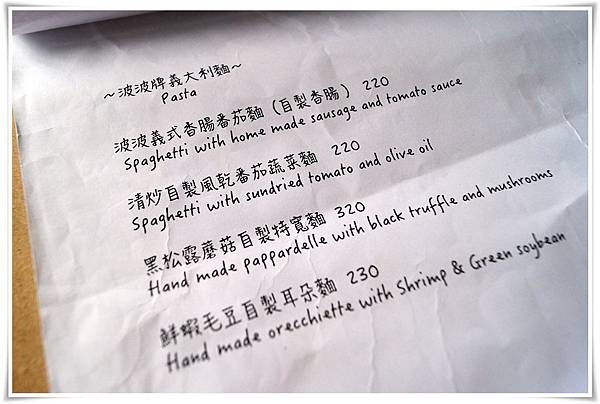 ～波波牌義大利麵～
Pasta
波波義式香腸番茄麵（自製香腸） 220
Spaghetti with home made sausage and tomato sauce
清炒自製風乾番茄蔬菜麵 220
Spaghetti with sundried tomato and olive oil
黑松露蘑菇自製特寬麵 320
Hand made pappardelle with black truffle and mushrooms
鮮蝦毛豆自製耳朵麵 230
Hand made orecchiette with Shrimp & Green soybean